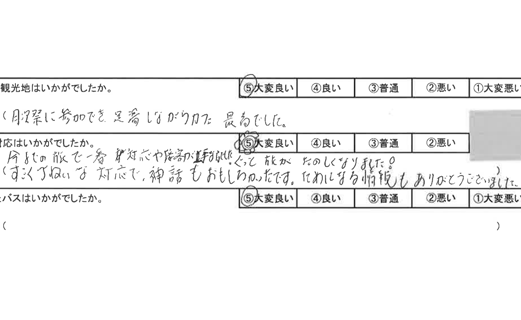 観光地はいかがでしたか。 ⑤大変良い ④良い ③普通 ②悪い ①大変悪い
(
に参加でき 足番しながら 最高でした。
対応はいかがでしたか。 ⑤大変良い ④良い ③普通 ②悪い ①大変悪い
旅で一番 対応や って 旅が たのしくなりました!
(すごくていねいな対応で、神話もおもしろかったです。ためになる情報もありがとうございました。)
バスはいかがでしたか。 ⑤大変良い ④良い ③普通 ②悪い ①大変悪い
( )